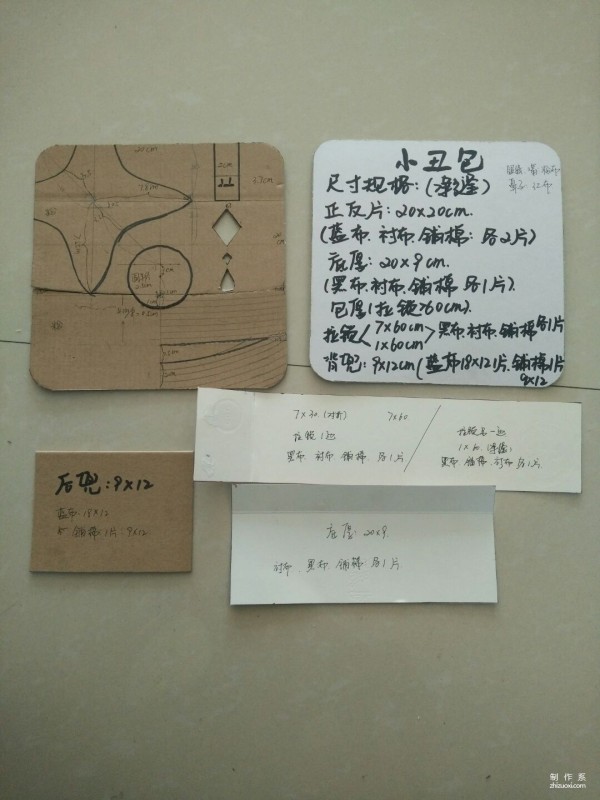 小丑包
尺寸规格:(净缝)
正反片:20x20cm.
(蓝布.衬布.铺棉:各2片)
底厚:20×9cm.
(黑布.衬布.铺棉 各1片).
包厚(拉链>60cm).
拉链<7×60cm 1×60cm>黑布.衬布.铺棉各1片
背兜:9x12cm(蓝布18x12 1片.铺棉1片
9x12
2cm
7x30(对折)
7x60
拉链1边
黑布 衬布 铺棉 各1片
拉链另一边
1x60(净缝)
黑布 铺棉.衬布.各1片
后兜:9X12
蓝布:18x12
铺棉1片:9x12
底厚:20x9.
衬布、黑布.铺棉.各1片
制作系
zhizuoxi.com